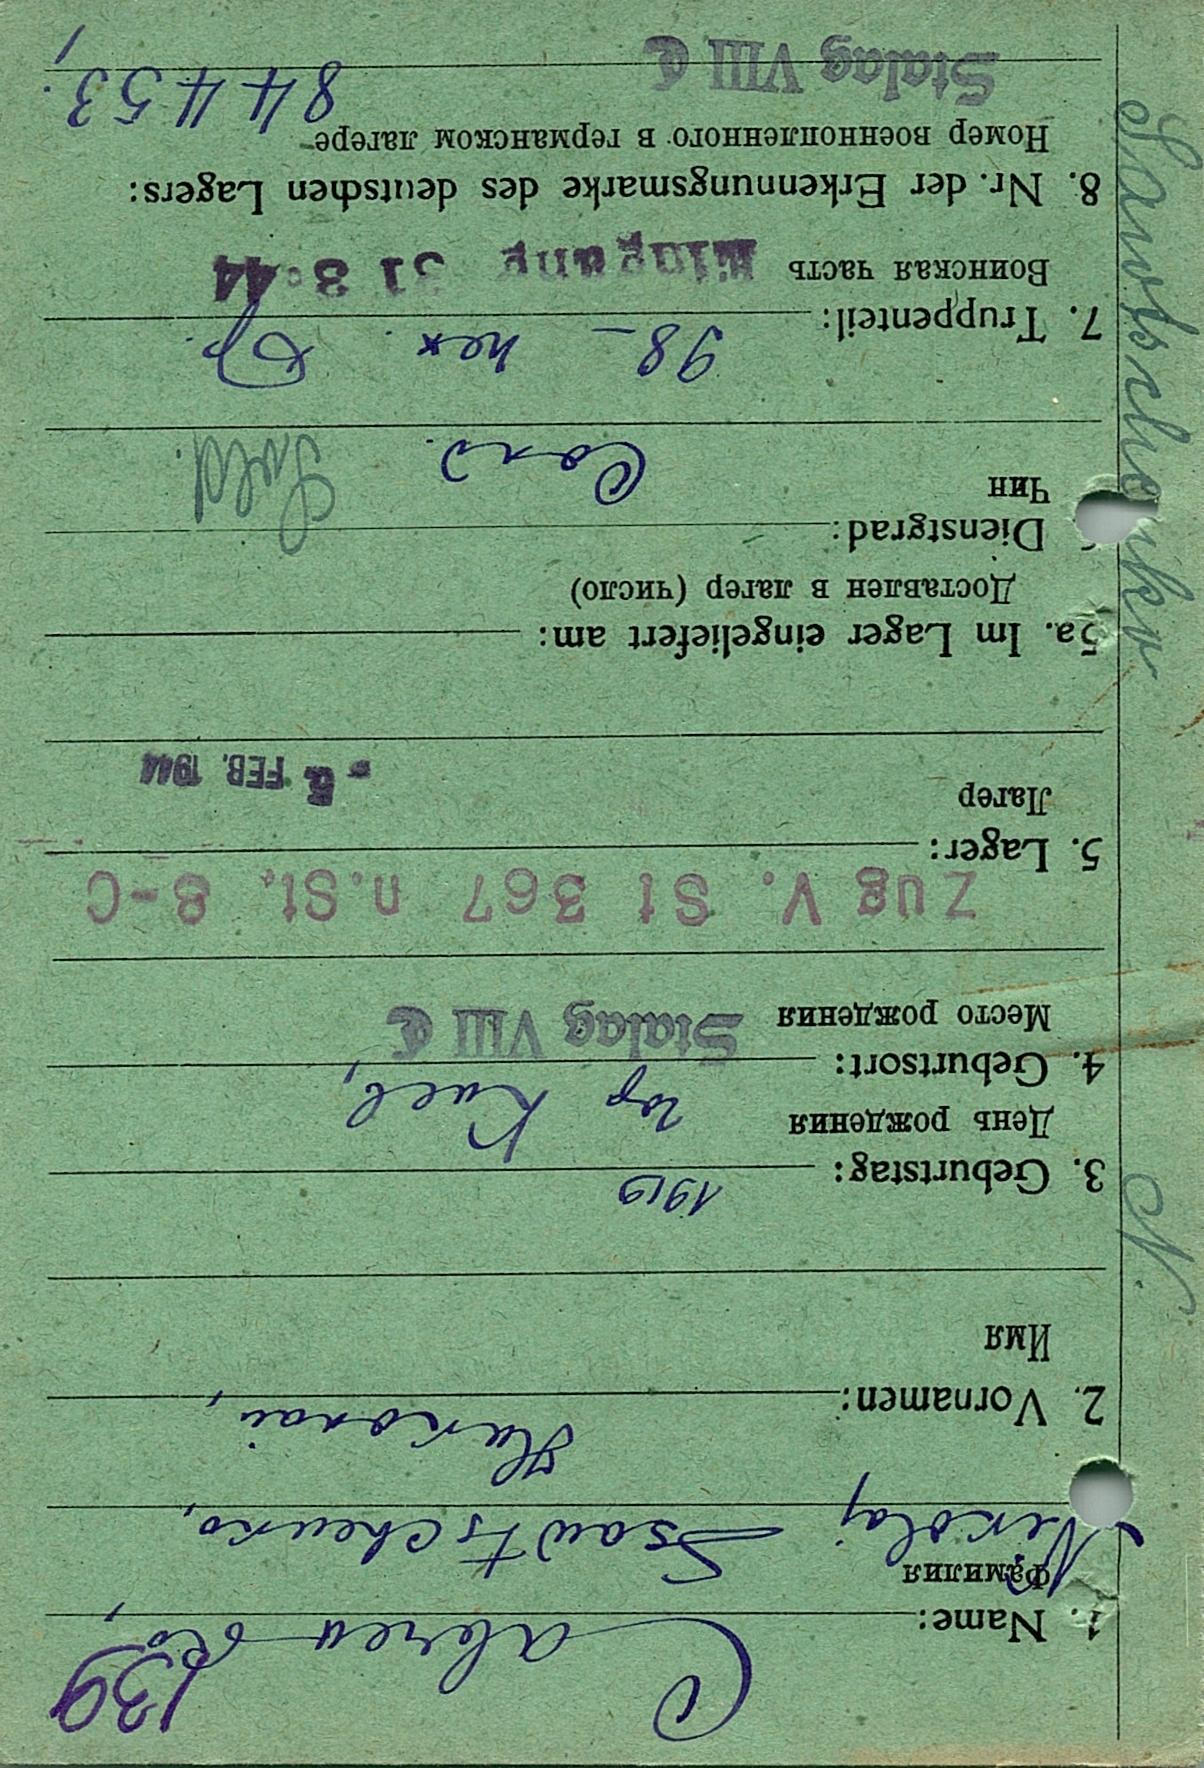 139
1. Name: Савченко,
Фамилия
Nikolaj Ssawtschenko,
2. Vornamen: Николай,
Имя
3. Geburtstag: 1919
День рождения
4. Geburtsort: гор Киев,
Место рождения Stalag VIII C
Zug v. St 367 n.St. 8-C
5. Lager:
Лагер
- 5. FEB. 1944
5a. Im Lager eingeliefert am:
Доставлен в лагер (число)
Dienstgrad: Sold.
Чин Солд.
7. Truppenteil: 98 –
Воинская часть Eingang 31 3.44
8. Nr. der Erkennungsmarke des deutschen Lagers:
Номер военнопленного в германском лагере
84453,
Stalag VIII C
Sawtschenko N.